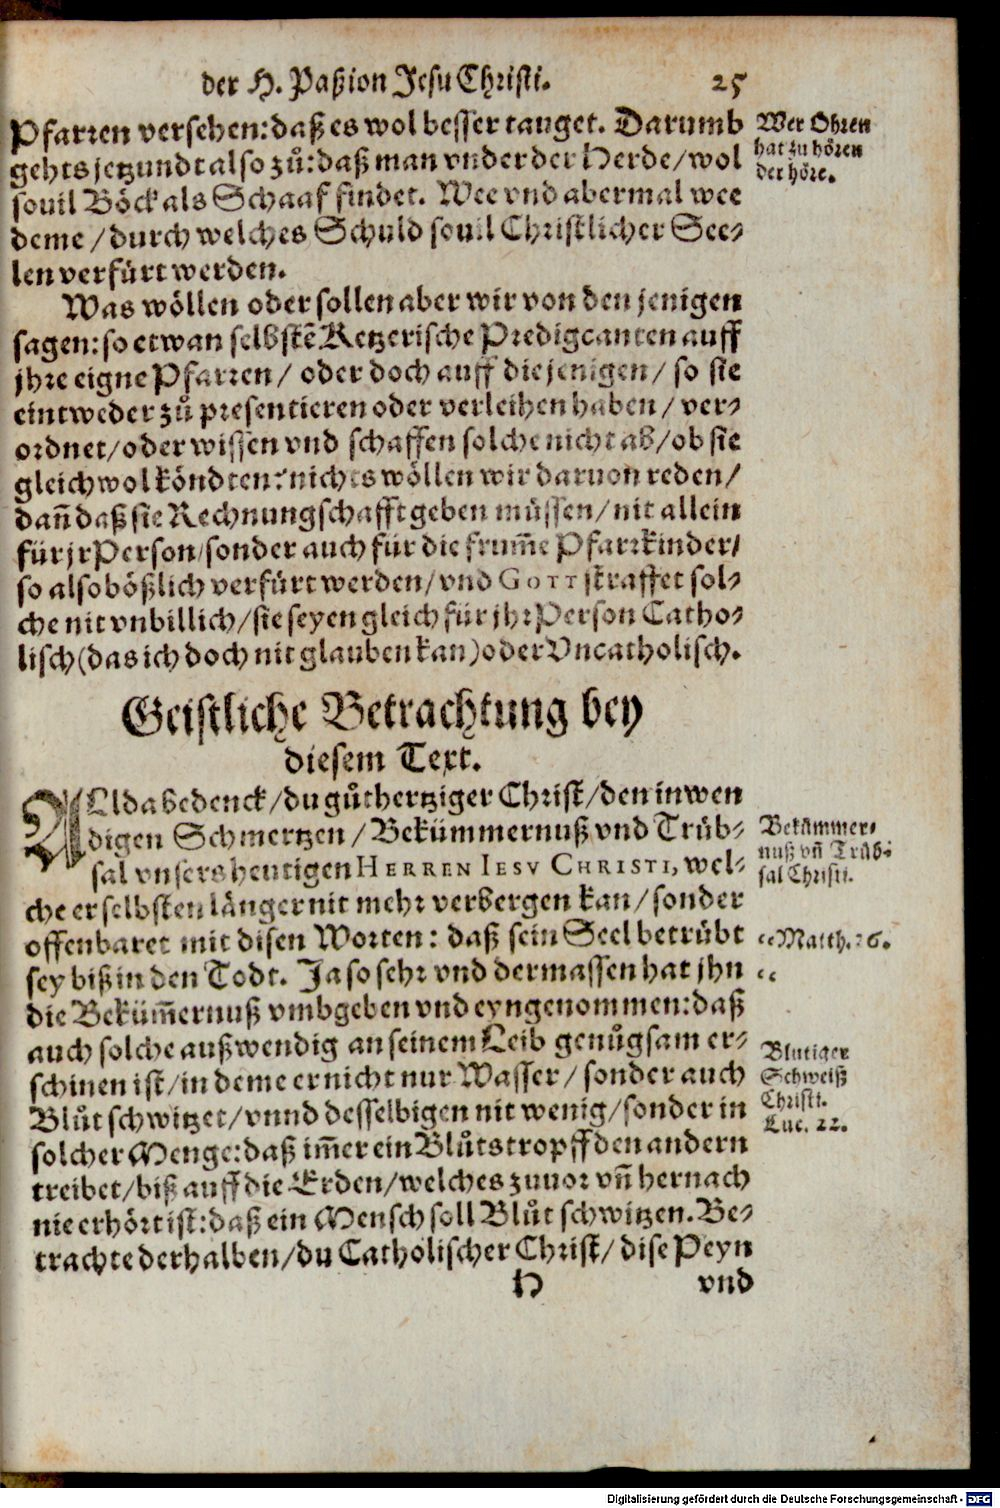 der H. Paßion Jesu Christi. 25
Pfarren versehen: daß es wol besser tauget. Darumb
gehts jetzundt also zů: daß man vnder der Herde/ wol
souil Böck als Schaaf findet. Wee vnd abermal wee
deme / durch welches Schuld souil Christlicher See-
len verfürt werden.
Wer Ohren
hat zu hören
der höre.
Was wöllen oder sollen aber wir von den jenigen
sagen: so etwan selbstē Ketzerische Predigcanten auff
jhre eigne Pfarren/ oder doch auff die jenigen/ so sie
eintweder zů presentieren oder verleihen haben / ver-
ordnet/ oder wissen vnd schaffen solche nicht ab/ ob sie
gleichwol köndten? nichts wöllen wir daruon reden/
dañ daß sie Rechnungschafft geben müssen/ nit allein
für jr Person/ sonder auch für die frum̃e Pfarrkinder/
so also bößlich verfürt werden/ vnd GOTT straffet sol-
che nit vnbillich/ sie seyen gleich für jhr Person Catho-
lisch (das ich doch nit glauben kan) oder Vncatholisch.
Geistliche Betrachtung bey
diesem Text.
ALlda bedenck/ du gůthertziger Christ/ den inwen
digen Schmertzen / Bekümmernuß vnd Trüb-
sal vnsers heutigen HERREN IESV CHRISTI, wel-
che er selbsten länger nit mehr verbergen kan/ sonder
offenbaret mit disen Worten: daß sein Seel betrübt
sey biß in den Todt. Ja so sehr vnd dermassen hat jhn
die Beküm̃ernuß vmbgeben vnd eyngenommen: daß
auch solche außwendig an seinem Leib genůgsam er-
schinen ist/ in deme er nicht nur Wasser / sonder auch
Blůt schwitzet/ vnnd desselbigen nit wenig/ sonder in
solcher Menge: daß im̃er ein Blůtstropff den andern
treibet/ biß auff die Erden/ welches zuuor vñ hernach
nie erhört ist: daß ein Mensch soll Blůt schwitzen. Be-
trachte derhalben/ du Catholischer Christ/ dise Peyn
Bekümmer-
nuß vñ Trüb-
sal Christi.
Matth. 26.
Blutiger
Schweiß
Christi.
Luc. 22.
H vnd
Digitalisierung gefördert durch die Deutsche Forschungsgemeinschaft - DFG